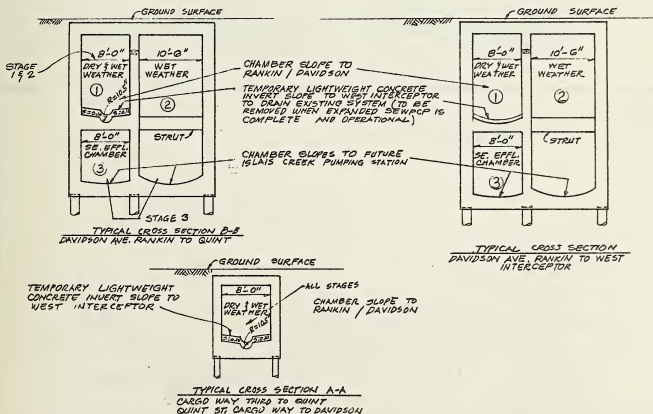 GROUND SURFACE
STAGE
1 & 2
8'-0"
DRY & WET
WEATHER
①
R=10.5"
10'-6"
WET
WEATHER
②
8'-0"
SE. EFFL.
CHAMBER
③
STRUT
STAGE 3
TYPICAL CROSS SECTION B-B
DAVIDSON AVE. RANKIN TO QUINT
CHAMBER SLOPE TO
RANKIN / DAVIDSON
TEMPORARY LIGHTWEIGHT CONCRETE
INVERT SLOPE TO WEST INTERCEPTOR
TO DRAIN EXISTING SYSTEM (TO BE
REMOVED WHEN EXPANDED SEWPCP IS
COMPLETE AND OPERATIONAL)
CHAMBER SLOPES TO FUTURE
ISLAIS CREEK PUMPING STATION
GROUND SURFACE
8'-0"
DRY & WET
WEATHER
①
10'-6"
WET
WEATHER
②
8'-0"
SE. EFFL.
CHAMBER
③
STRUT
TYPICAL CROSS SECTION
DAVIDSON AVE. RANKIN TO WEST
INTERCEPTOR
GROUND SURFACE
TEMPORARY LIGHTWEIGHT
CONCRETE INVERT SLOPE TO
WEST INTERCEPTOR
8'-0"
DRY & WET
WEATHER
R=10.5"
ALL STAGES
CHAMBER SLOPE TO
RANKIN / DAVIDSON
TYPICAL CROSS SECTION A-A
CARGO WAY THIRD TO QUINT
QUINT ST. CARGO WAY TO DAVIDSON